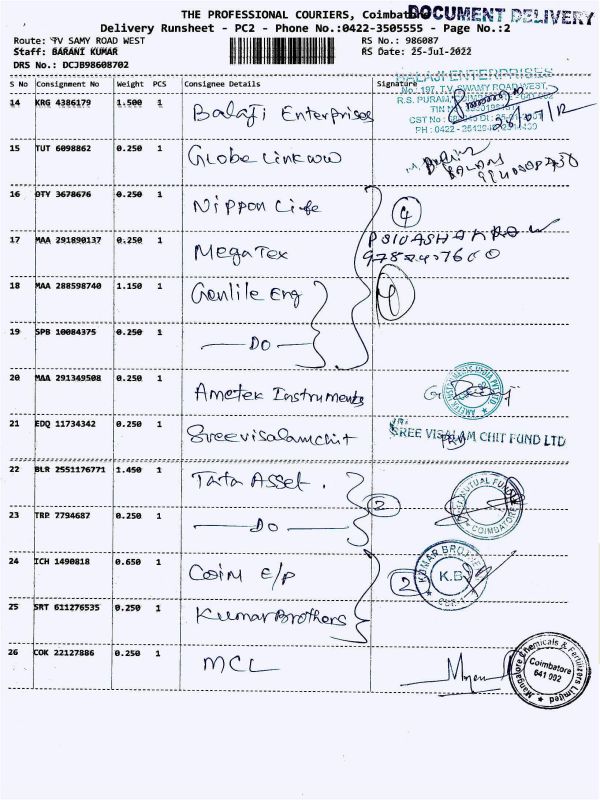 THE PROFESSIONAL COURIERS, Coimbatore
DOCUMENT DELIVERY
Delivery Runsheet - PC2 - Phone No.:0422-3505555 - Page No.:2
Route: TV SAMY ROAD WEST RS No.: 986087
Staff: BARANI KUMAR RS Date: 25-Jul-2022
DRS No.: DCJB98608702
S No Consignment No Weight PCS Consignee Details Signature
BALAJI ENTERPRISES
No. 197, T.V. SWAMY ROAD WEST,
R.S. PURAM,
14 KRG 4386179 1.500 1 Balaji Enterprises
15 TUT 6098862 0.250 1 Globe Link ww
16 OTY 3678676 0.250 1 Nippon Life 4
17 MAA 291890137 0.250 1 MegaTex
18 MAA 288598740 1.150 1 Genlile Eng 4
19 SPB 10084375 0.250 1 DO
20 MAA 291349508 0.250 1 Ametek Instruments
21 EDQ 11734342 0.250 1 Sreevisalamchit
SREE VISALAM CHIT FUND LTD
22 BLR 2551176771 1.450 1 Tata Asset. 2
MUTUAL FUND
COIMBATORE
23 TRP 7794687 0.250 1 DO
24 ICH 1490818 0.650 1 Coim E/P 2
KUMAR BROTHERS
K.B
25 SRT 611276535 0.250 1 Kumar Brothers
26 COK 22127886 0.250 1 MCL
Mangalore Chemicals & Fertilizers Limited
Coimbatore
641 002